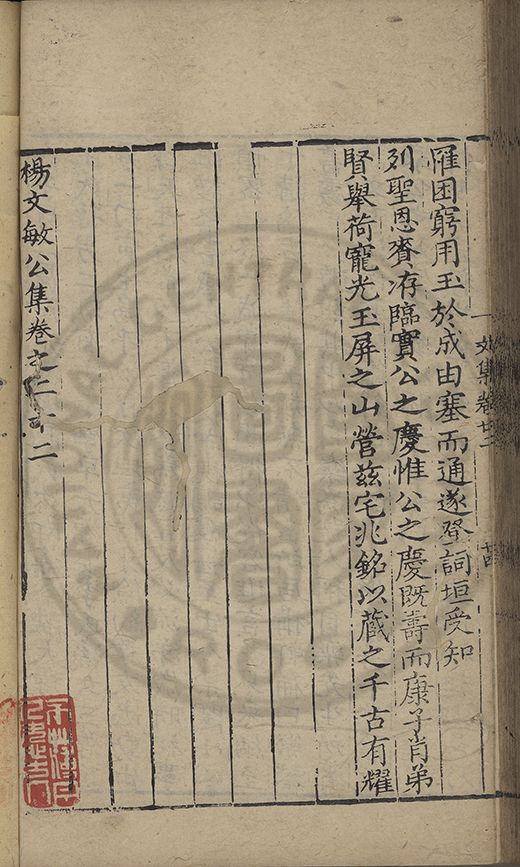 罹困窮用玉於成由塞而通遂登詞垣受知
列聖恩賚洊臨實公之慶惟公之慶既壽而康子肖弟
賢舉荷寵光玉屏之山營茲宅兆銘以藏之千古有耀
楊文敏公集卷之二十二